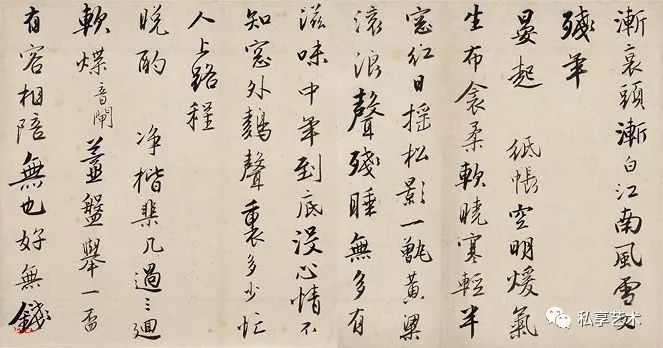 漸衰頭漸白江南風雪又
殘年
晏起 紙帳空明煖氣
生布衾柔軟曉寒輕半
窓紅日搖松影一甑黃粱
滾浪聲殘睡無多有
滋味中年到底沒心情不
知窓外鷄聲裏多少忙
人上路程
晚酌 净揩棐几過三迴
軟煠音閘薑盤舉一盃
有客相陪無也好無錢
私享艺术